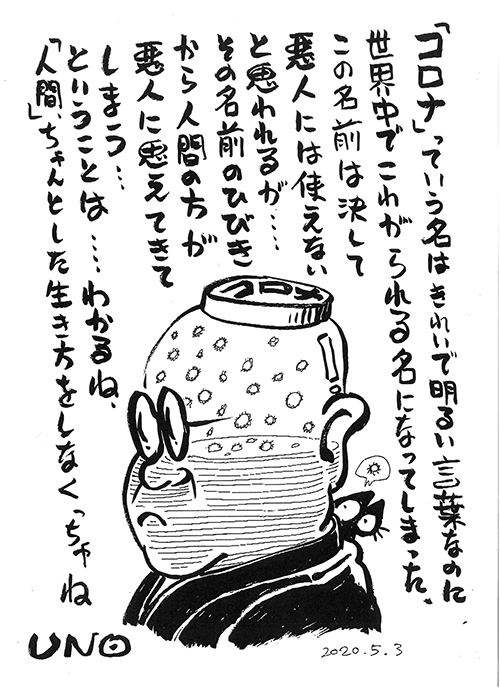 「コロナ」っていう名はきれいで明るい言葉なのに
世界中でこわがられる名になってしまった、
この名前は決して
悪人には使えない
と思われるが‥‥
その名前のひびき
から人間の方が
悪人に思えてきて
しまう‥‥
ということは‥‥わかるね、
「人間」、ちゃんとした生き方をしなくっちゃね
UNO
2020.5.3